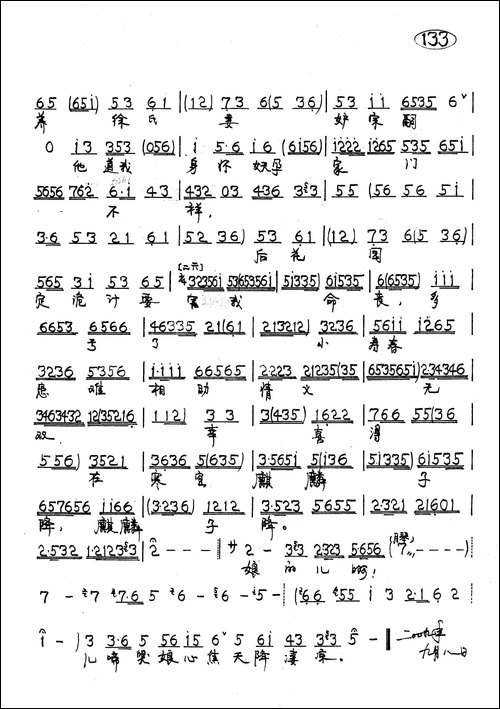 133
65 (65i) 53 61 | (12) 73 6(5 36) | 53 ii 6535 6
徐 氏 妻 妒 家
0 i3 353 (056) | i 5·6 i6 (6i56) | i222 i265 535 65i
他 道 我 身 怀 妖 孕 家 门
5656 762 6·1 43 | 432 03 436 323 | 55 (56 56 5i
不 祥,
3·6 53 21 61 | 52 36) 53 61 | (12) 73 6(5 36)
后 花 园
565 3i 53 65 | 32356i 5365356i | 5i335) 6i535 | 6(6535) iii
定 诡 计 要 害 我 命 丧, 多
6653 6566 | 46335 21(61 | 213212) 3236 | 56ii i265
亏 了 小 寿 春
3236 5356 | i·iii 66565 | 2223 21235(35 | 6535651) 234346
患 难 相 助 情 义 无
3463432 12(35216 | 112) 33 | 3(435) 1622 | 766 55(36
双. 幸 喜 得
556) 3521 | 3636 5(635) | 3·565i 5i36 | 5i335) 6i535
在 寒 宫 麒 麟 子
657656 ii66 | (3·236) 1212 | 3·523 5655 | 2·321 2(601
降, 麒 麟 子 降。
2·532 1·2123 | 2 - - - | 2 - 323 2323 5656 7 - - -
娘 的 儿 啊!
7 - 7 7·6 5 6 - 6 - 5 - | (66 55 i 3 2·1 6 2
i - ) 3 3·6 5 56 i5 6 5 6i 43 323 5 - ‖ 二〇〇九年
儿 啼 哭 娘 心 焦 天 降 凄 凉。 九月八日